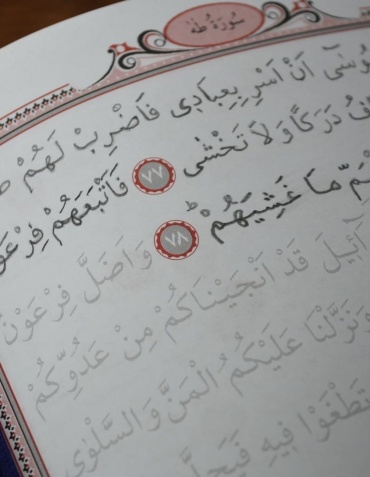 سُورَةُ طٰهٰ
مُوسٰٓى اَنْ اَسْرِ بِعِبَادٖى فَاضْرِبْ لَهُمْ
دَرَكًا وَلَا تَخْشٰى ﴿٧٧﴾ فَاَتْبَعَهُمْ فِرْعَوْ
مَا غَشِيَهُمْ ﴿٧٨﴾ وَاَضَلَّ فِرْعَوْنُ
قَدْ اَنْجَيْنَاكُمْ مِنْ عَدُوِّكُمْ
وَنَزَّلْنَا عَلَيْكُمُ الْمَنَّ وَالسَّلْوٰى
تَطْغَوْا فٖيهِ فَيَحِلَّ